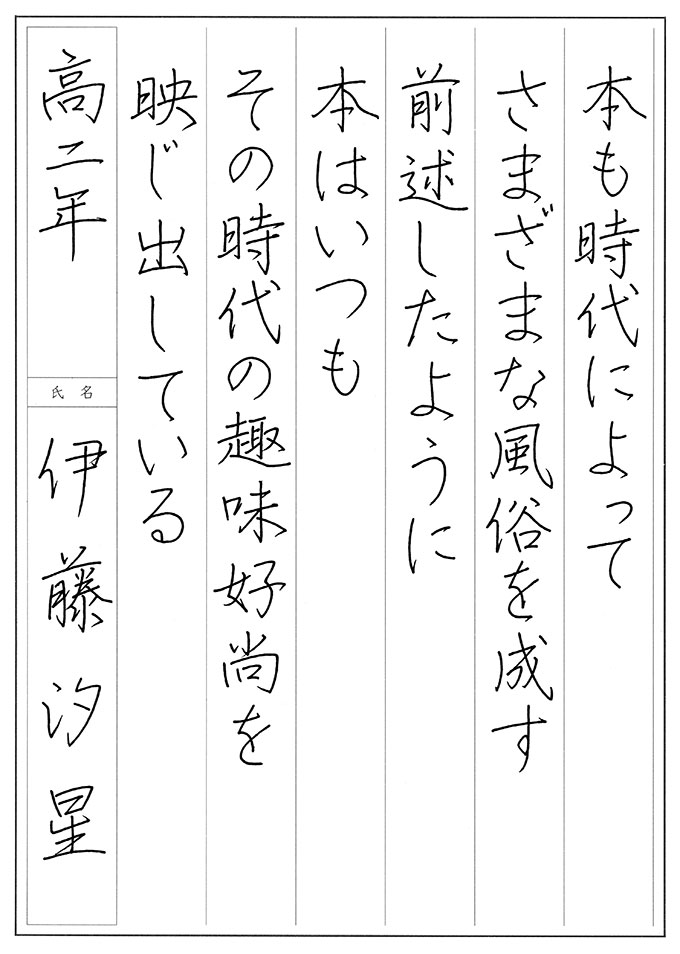 本も時代によって
さまざまな風俗を成す
前述したように
本はいつも
その時代の趣味好尚を
映じ出している
高二年
氏名
伊藤汐星